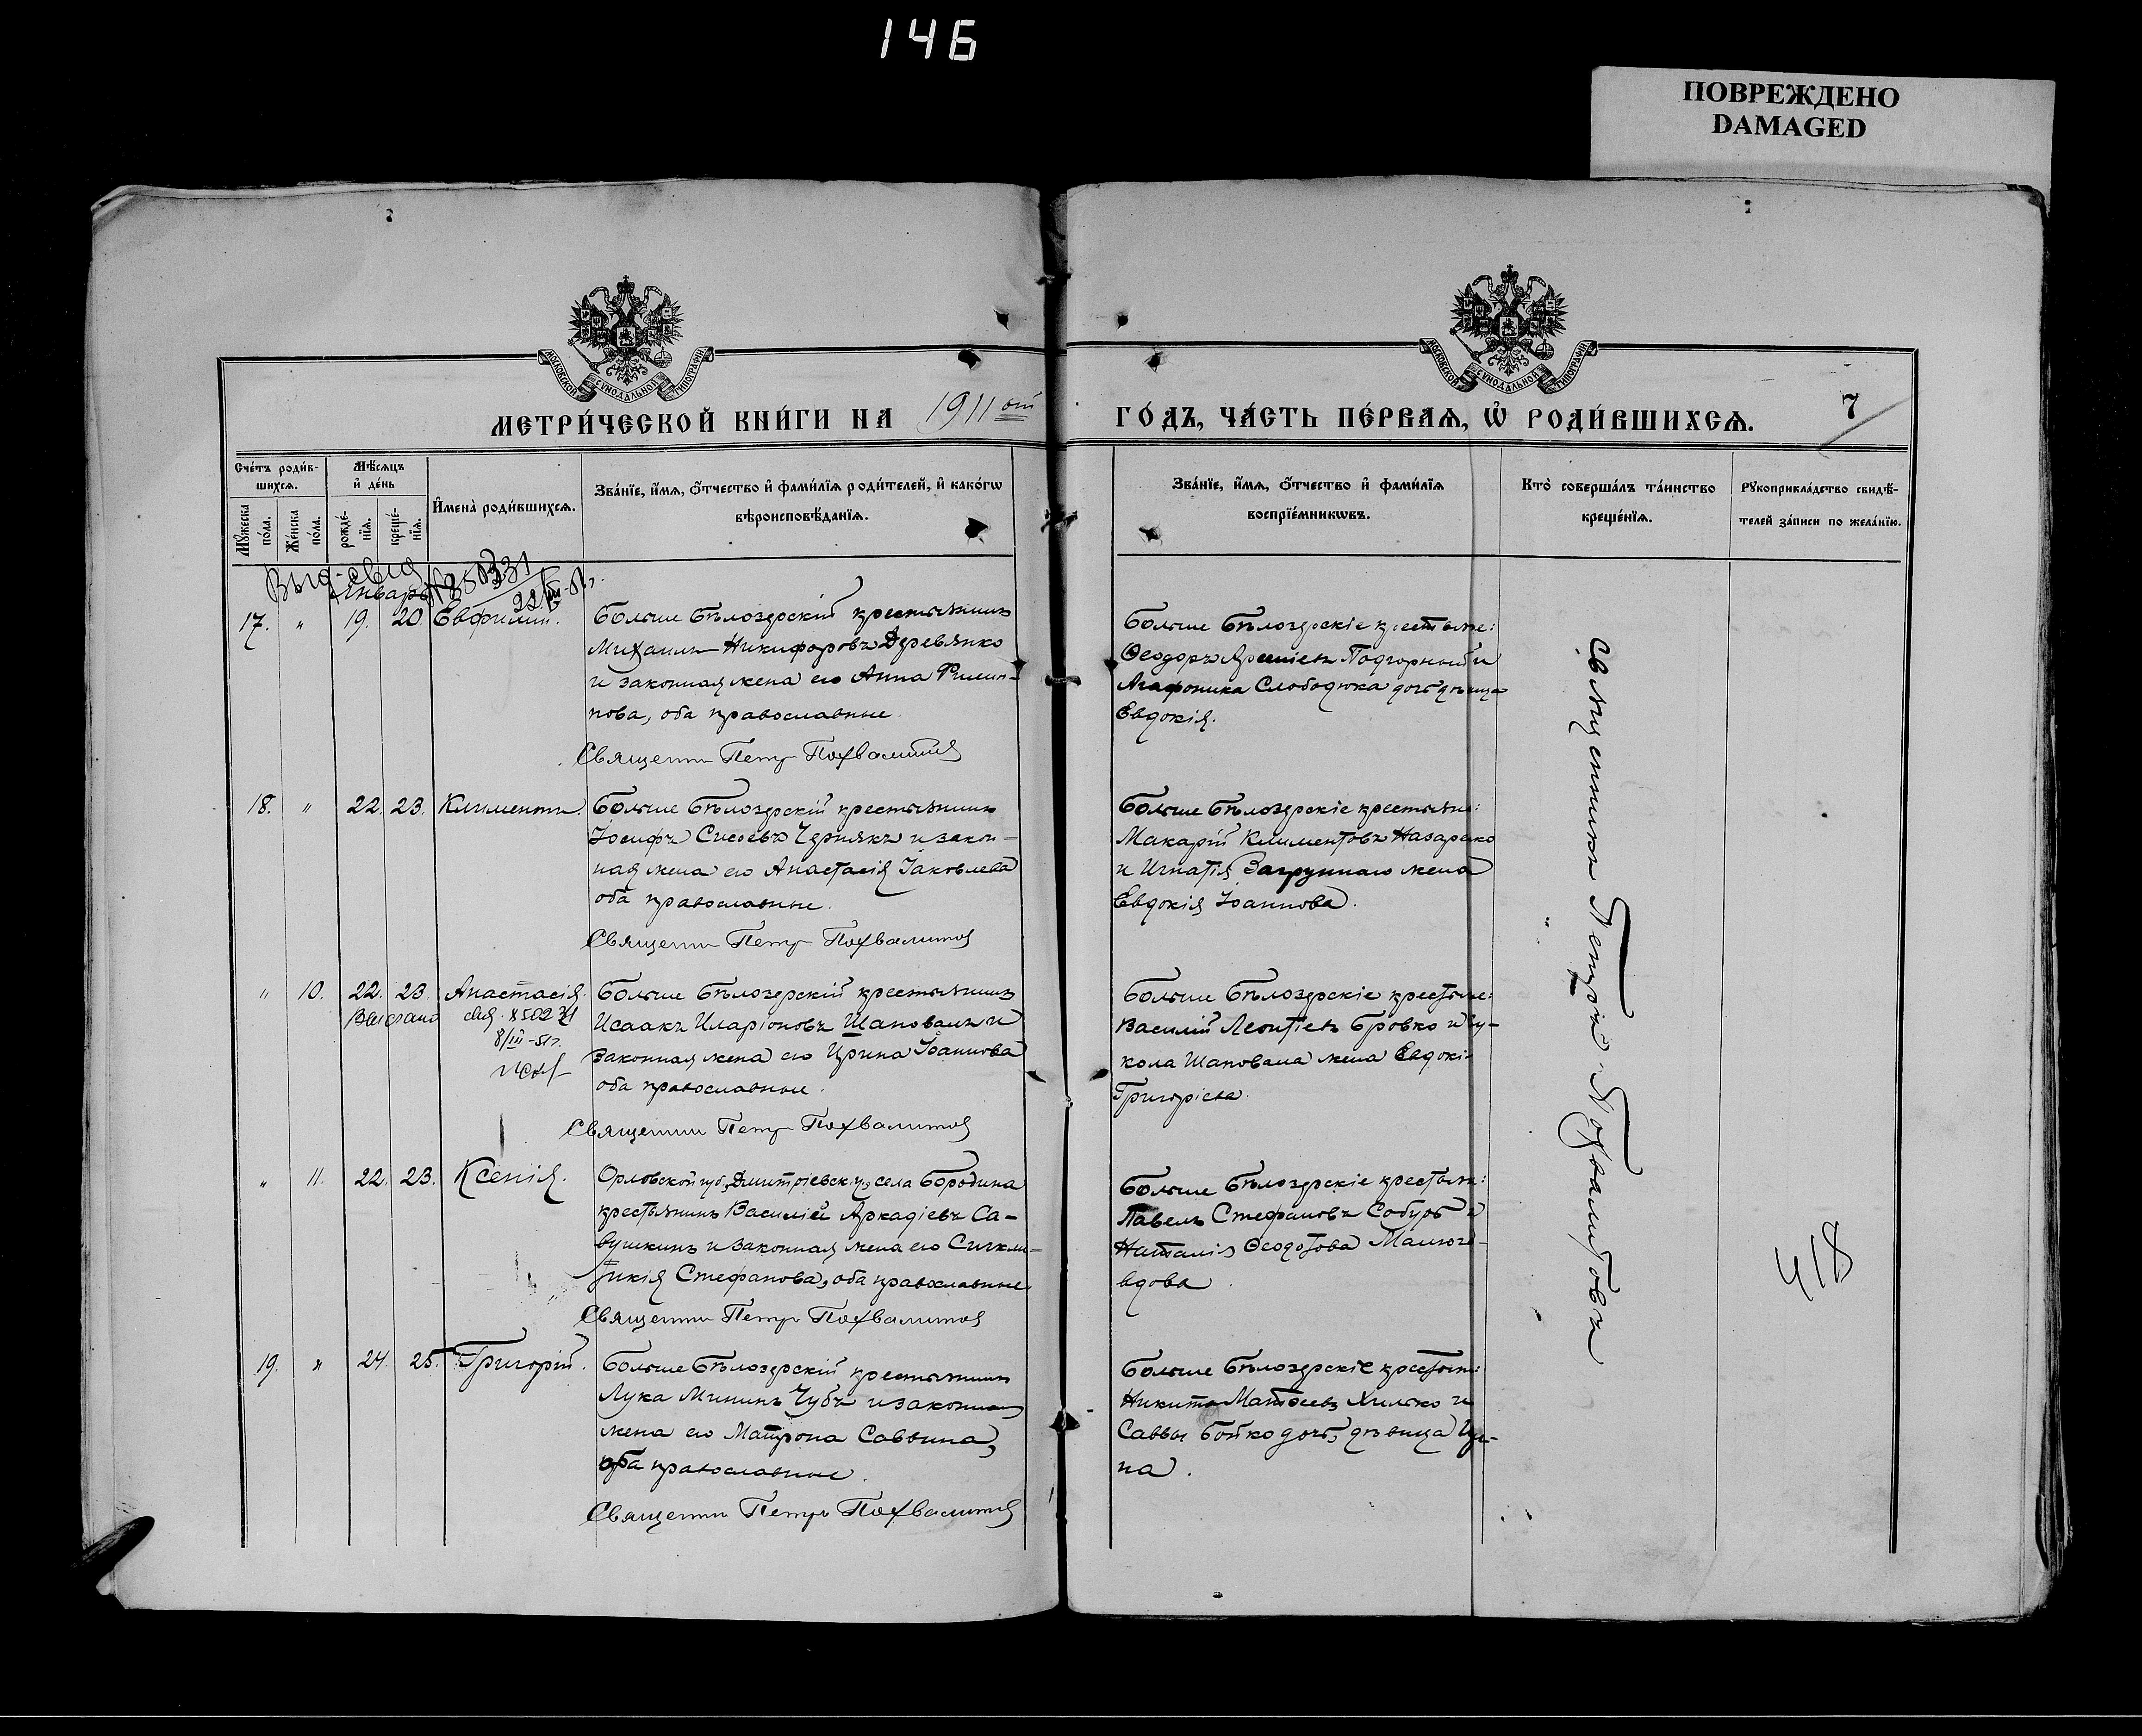 146
ПОВРЕЖДЕНО
DAMAGED
МОСКОВСКОЙ СѴНОДАЛЬНОЙ ТИПОГРАФІИ
МОСКОВСКОЙ СѴНОДАЛЬНОЙ ТИПОГРАФІИ
МЕТРИ́ЧЕСКОЙ КНИ́ГИ НА 1911 ый
ГО́ДЪ, ЧА́СТЬ ПЕ́РВАѦ, Ѡ҆ РОДИ́ВШИХСѦ.
7
Счётъ роди́в-
шихсѧ.
Мѣ́сѧцъ
и҆ де́нь
Мꙋ́жеска по́ла.
Же́нска по́ла.
рожде́-нїѧ.
креще́-нїѧ.
И҆мена̀ роди́вшихсѧ.
Зва́нїе, и҆́мѧ, ѻ҆́тчество и҆ фами́лїѧ роди́телей, и҆ како́гѡ
вѣроисповѣ́данїѧ.
Зва́нїе, и҆́мѧ, ѻ҆́тчество и҆ фами́лїѧ
воспрїе́мникѡвъ.
Кто̀ соверша́лъ та́инство
креще́нїѧ.
Рꙋкоприкла́дство свидѣ́-
телей за́писи по жела́нїю.
Январь
17. " 19. 20. Евфимій.
Больше Бѣлозерскій крестьянинъ
Михаилъ Никифоровъ Деревянко
и законная жена его Анна Филип-
пова, оба православные.
Священн Петр Похвалитов
Больше Бѣлозерскіе крестьяне:
Ѳеодоръ Подгорный и
Агафоника Слободюка дочь дѣвица
Евдокія.
18. " 22. 23. Климентъ.
Больше Бѣлозерскій крестьянинъ
Іосифъ Сисоевъ Чернякъ и закон-
ная жена его Анастасія Іаковлева
оба православные.
Священн Петр Похвалитов
Больше Бѣлозерскіе крестьяне:
Макарій Климентовъ Назаренко
и Игнатія жена
Евдокія Іоаннова.
" 10. 22. 23. Анастасія.
Выслано
8/III-51г.
Больше Бѣлозерскій крестьянинъ
Исаакъ Иларіоновъ Шаповалъ и
законная жена его Ирина Іоаннова
оба православные.
Священн Петр Похвалитов
Больше Бѣлозерскіе крестьяне:
Василій Леонтіевъ Бровко и Лу-
кола Шаповала жена Евдокія
Григоріева.
" 11. 22. 23. Ксенія.
Орловской губ, Дмитріевск. у, села Бородина
крестьянинъ Василій Аркадіевъ Са-
вушкинъ и законная жена его Сигкли-
тикія Стефанова, оба православные
Священн Петр Похвалитов
Больше Бѣлозерскіе крестьяне:
Павелъ Стефановъ Собурь и
Наталія Ѳеодотова
вдова
19. " 24. 25. Григорій.
Больше Бѣлозерскій крестьянинъ
Лука Мининъ Чубъ и законная
жена его Матрона Саввина,
оба православные.
Священн Петр Похвалитов
Больше Бѣлозерскіе крестьяне:
Никита Матѳеевъ Хилько и
Саввы Бойко дочь, дѣвица Ири-
на.
Священникъ Петръ Похвалитовъ
418